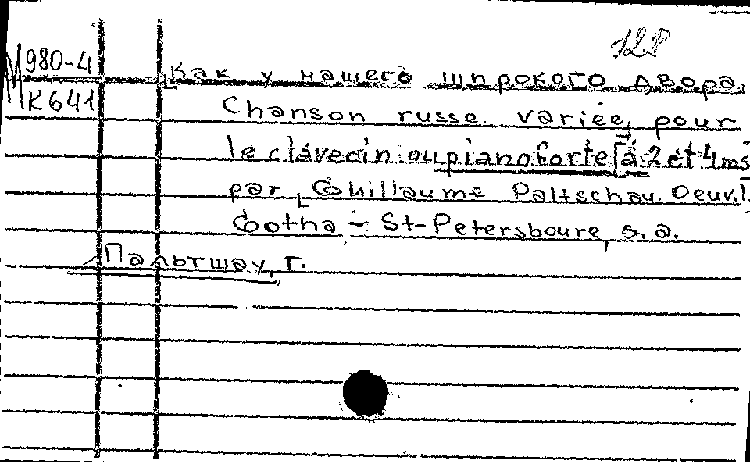 128
М980-4
К641
Как у нашего широкого двора.
Chanson russe variée, pour
le clavecin ou pianoforte [à 2 et 4 ms
par Guillaume Paltschau. Oeuv. 1.
Gotha - St-Petersboure, s. a.
Пальтшау, Г.